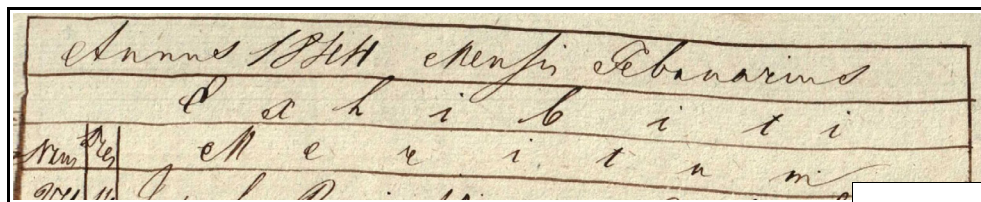 Annus 1844 Mensis Febanarius
Exhibiti
Nrus Dies Meritum